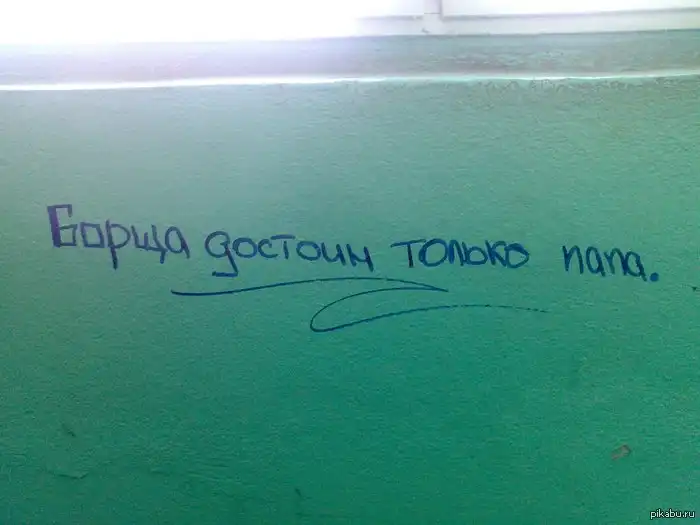 Борща достоин только папа.
pikabu.ru